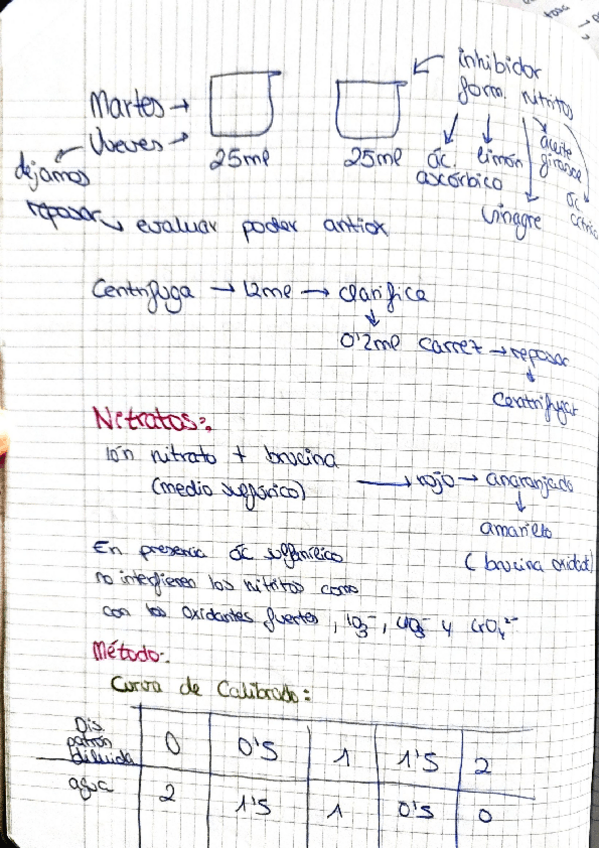 inhibidor
form. nitritos
Martes →
Jueves →
25ml 25ml
ác. ascórbico
limón
vinagre
aceite girasol
ác. cítrico
dejamos
reposar → evaluar poder antiox
Centrífuga → 12ml → clarifica
0'2ml carrez → reposar
centrifugar
Nitratos:
ión nitrato + brucina
(medio sulfúrico) → rojo → anaranjado
amarillo
(brucina oxidad)
En presencia ác sulfanílico
no interfieren los nitritos como
con los oxidantes fuertes, IO3⁻, ClO3⁻ y CrO4²⁻
Método:
Curva de Calibrado:
Dis patrón diluida 0 0'5 1 1'5 2
agua 2 1'5 1 0'5 0